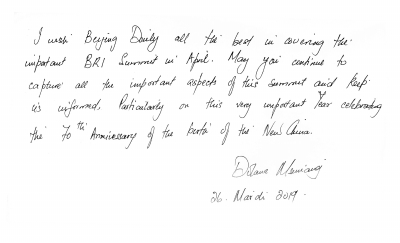 I wish Beijing Daily all the best in covering the
important BRI Summit in April. May you continue to
capture all the important aspects of this summit and keep
us informed. Particularly on this very important Year celebrating
the 70th Anniversary of the birth of the New China.
26. 2019.